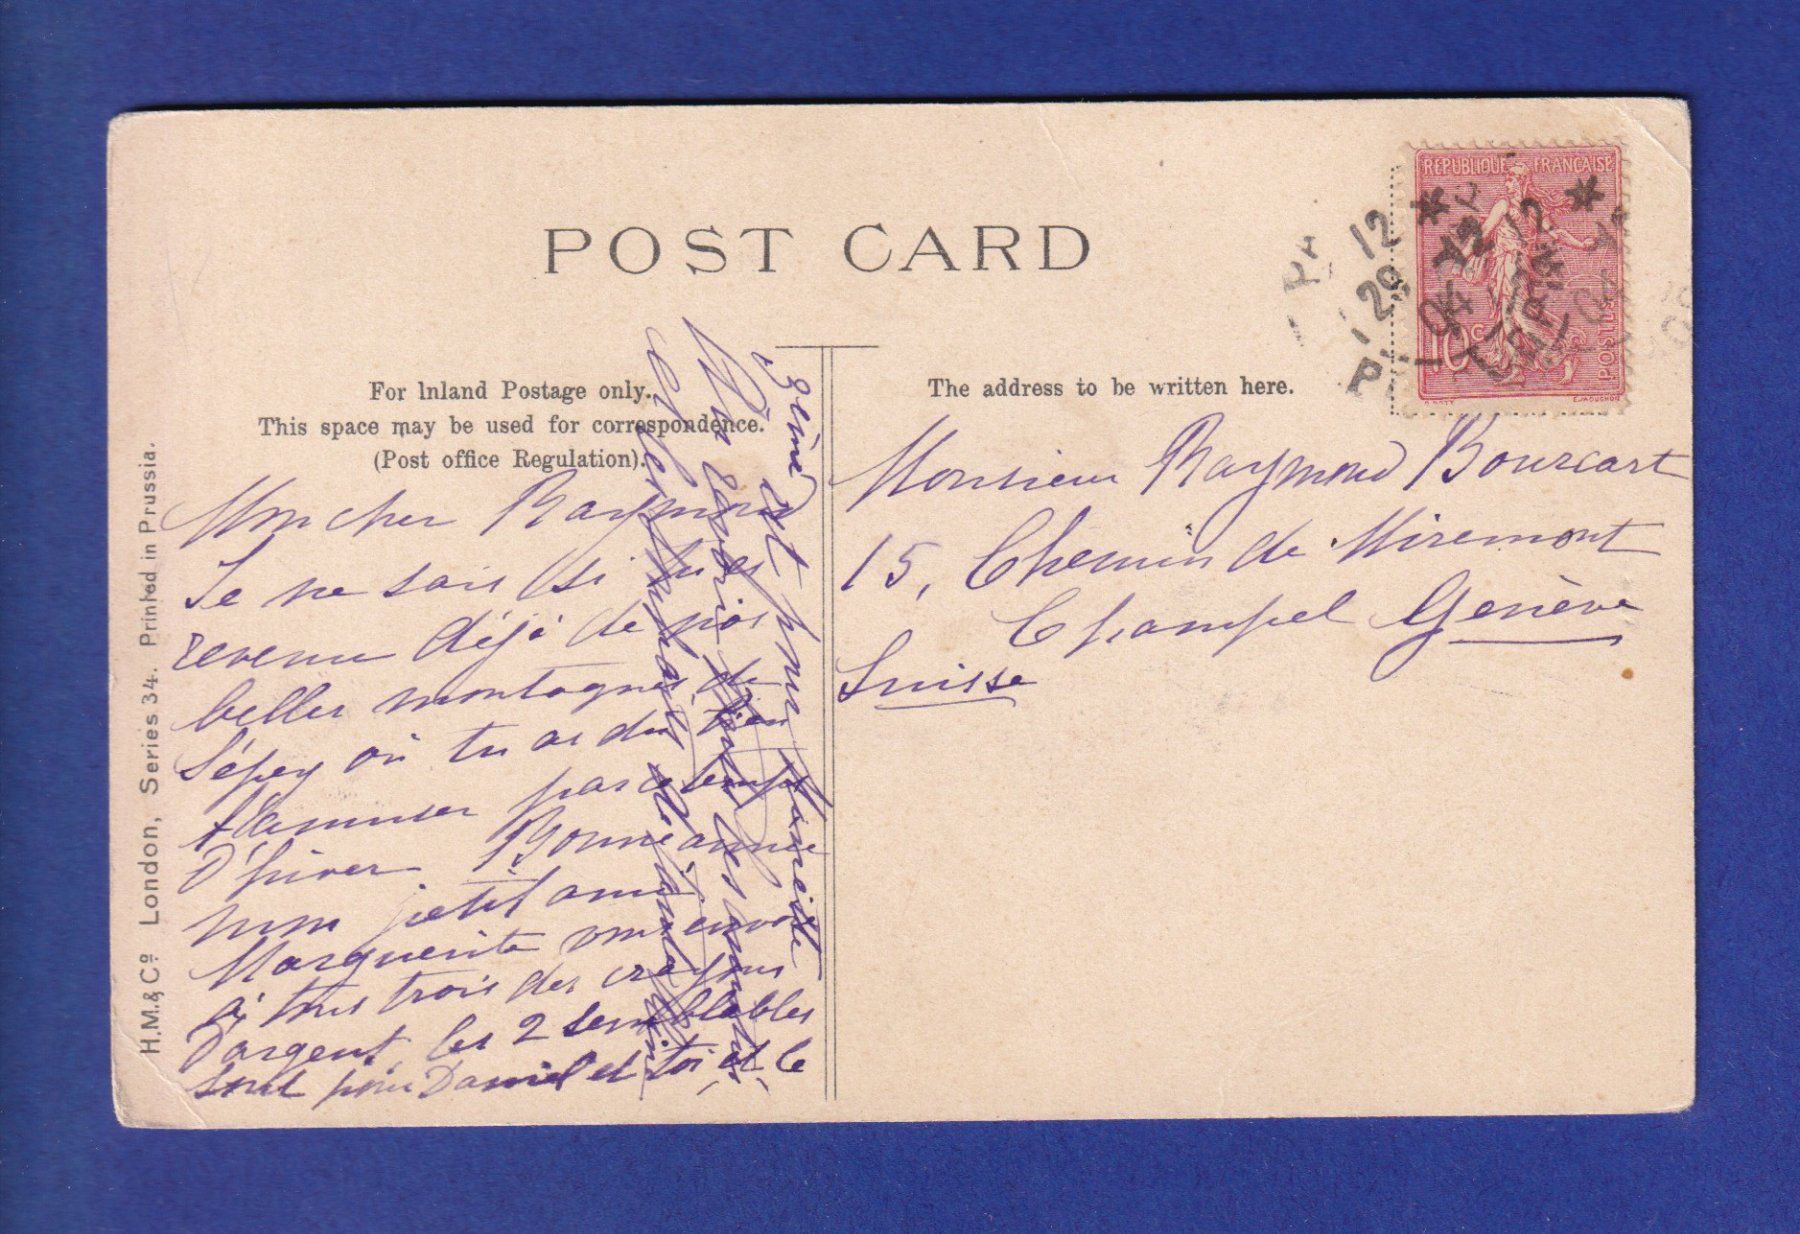 POST CARD
REPUBLIQUE FRANÇAISE
10c
POSTES
12
29
12
04
For Inland Postage only.
This space may be used for correspondence.
(Post office Regulation).
The address to be written here.
H.M.& Co London, Series 34. Printed in Prussia.
Mon cher Raymond
Je ne sais si tu es
revenu déjà de nos
belles montagnes de
Sépey où tu as du bien
t'amuser par ce temps
d'hiver Bonne année
mon petit ami
Marguerite vous envoie
à tous trois des crayons
d'argent, les 2 semblables
sont pour Daniel et toi et le
3ème est pour
Monsieur Raymond Bourcart
15, Chemin de Miremont
Champel Genève
Suisse